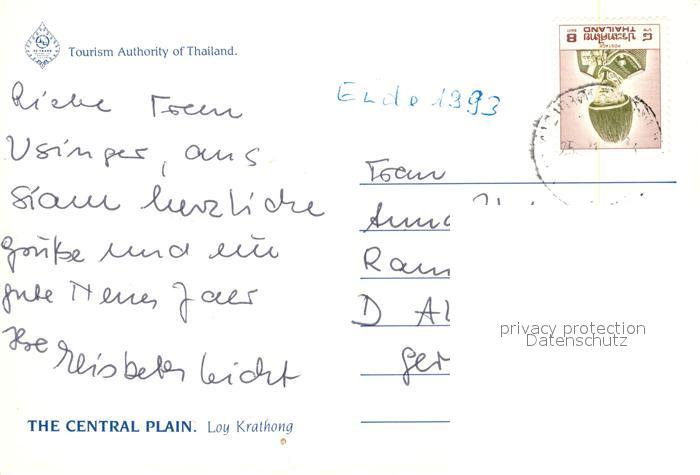 Tourism Authority of Thailand.
Ende 1993
8
ประเทศไทย
THAILAND
POSTAGE
Liebe Frau
Usinger, aus
Siam herzliche
Grüße und ein
gute Neues Jaer
Ihre Elisbeter Leicht
Frau
Anna
Ram
D Al
Ger
privacy protection
Datenschutz
THE CENTRAL PLAIN. Loy Krathong